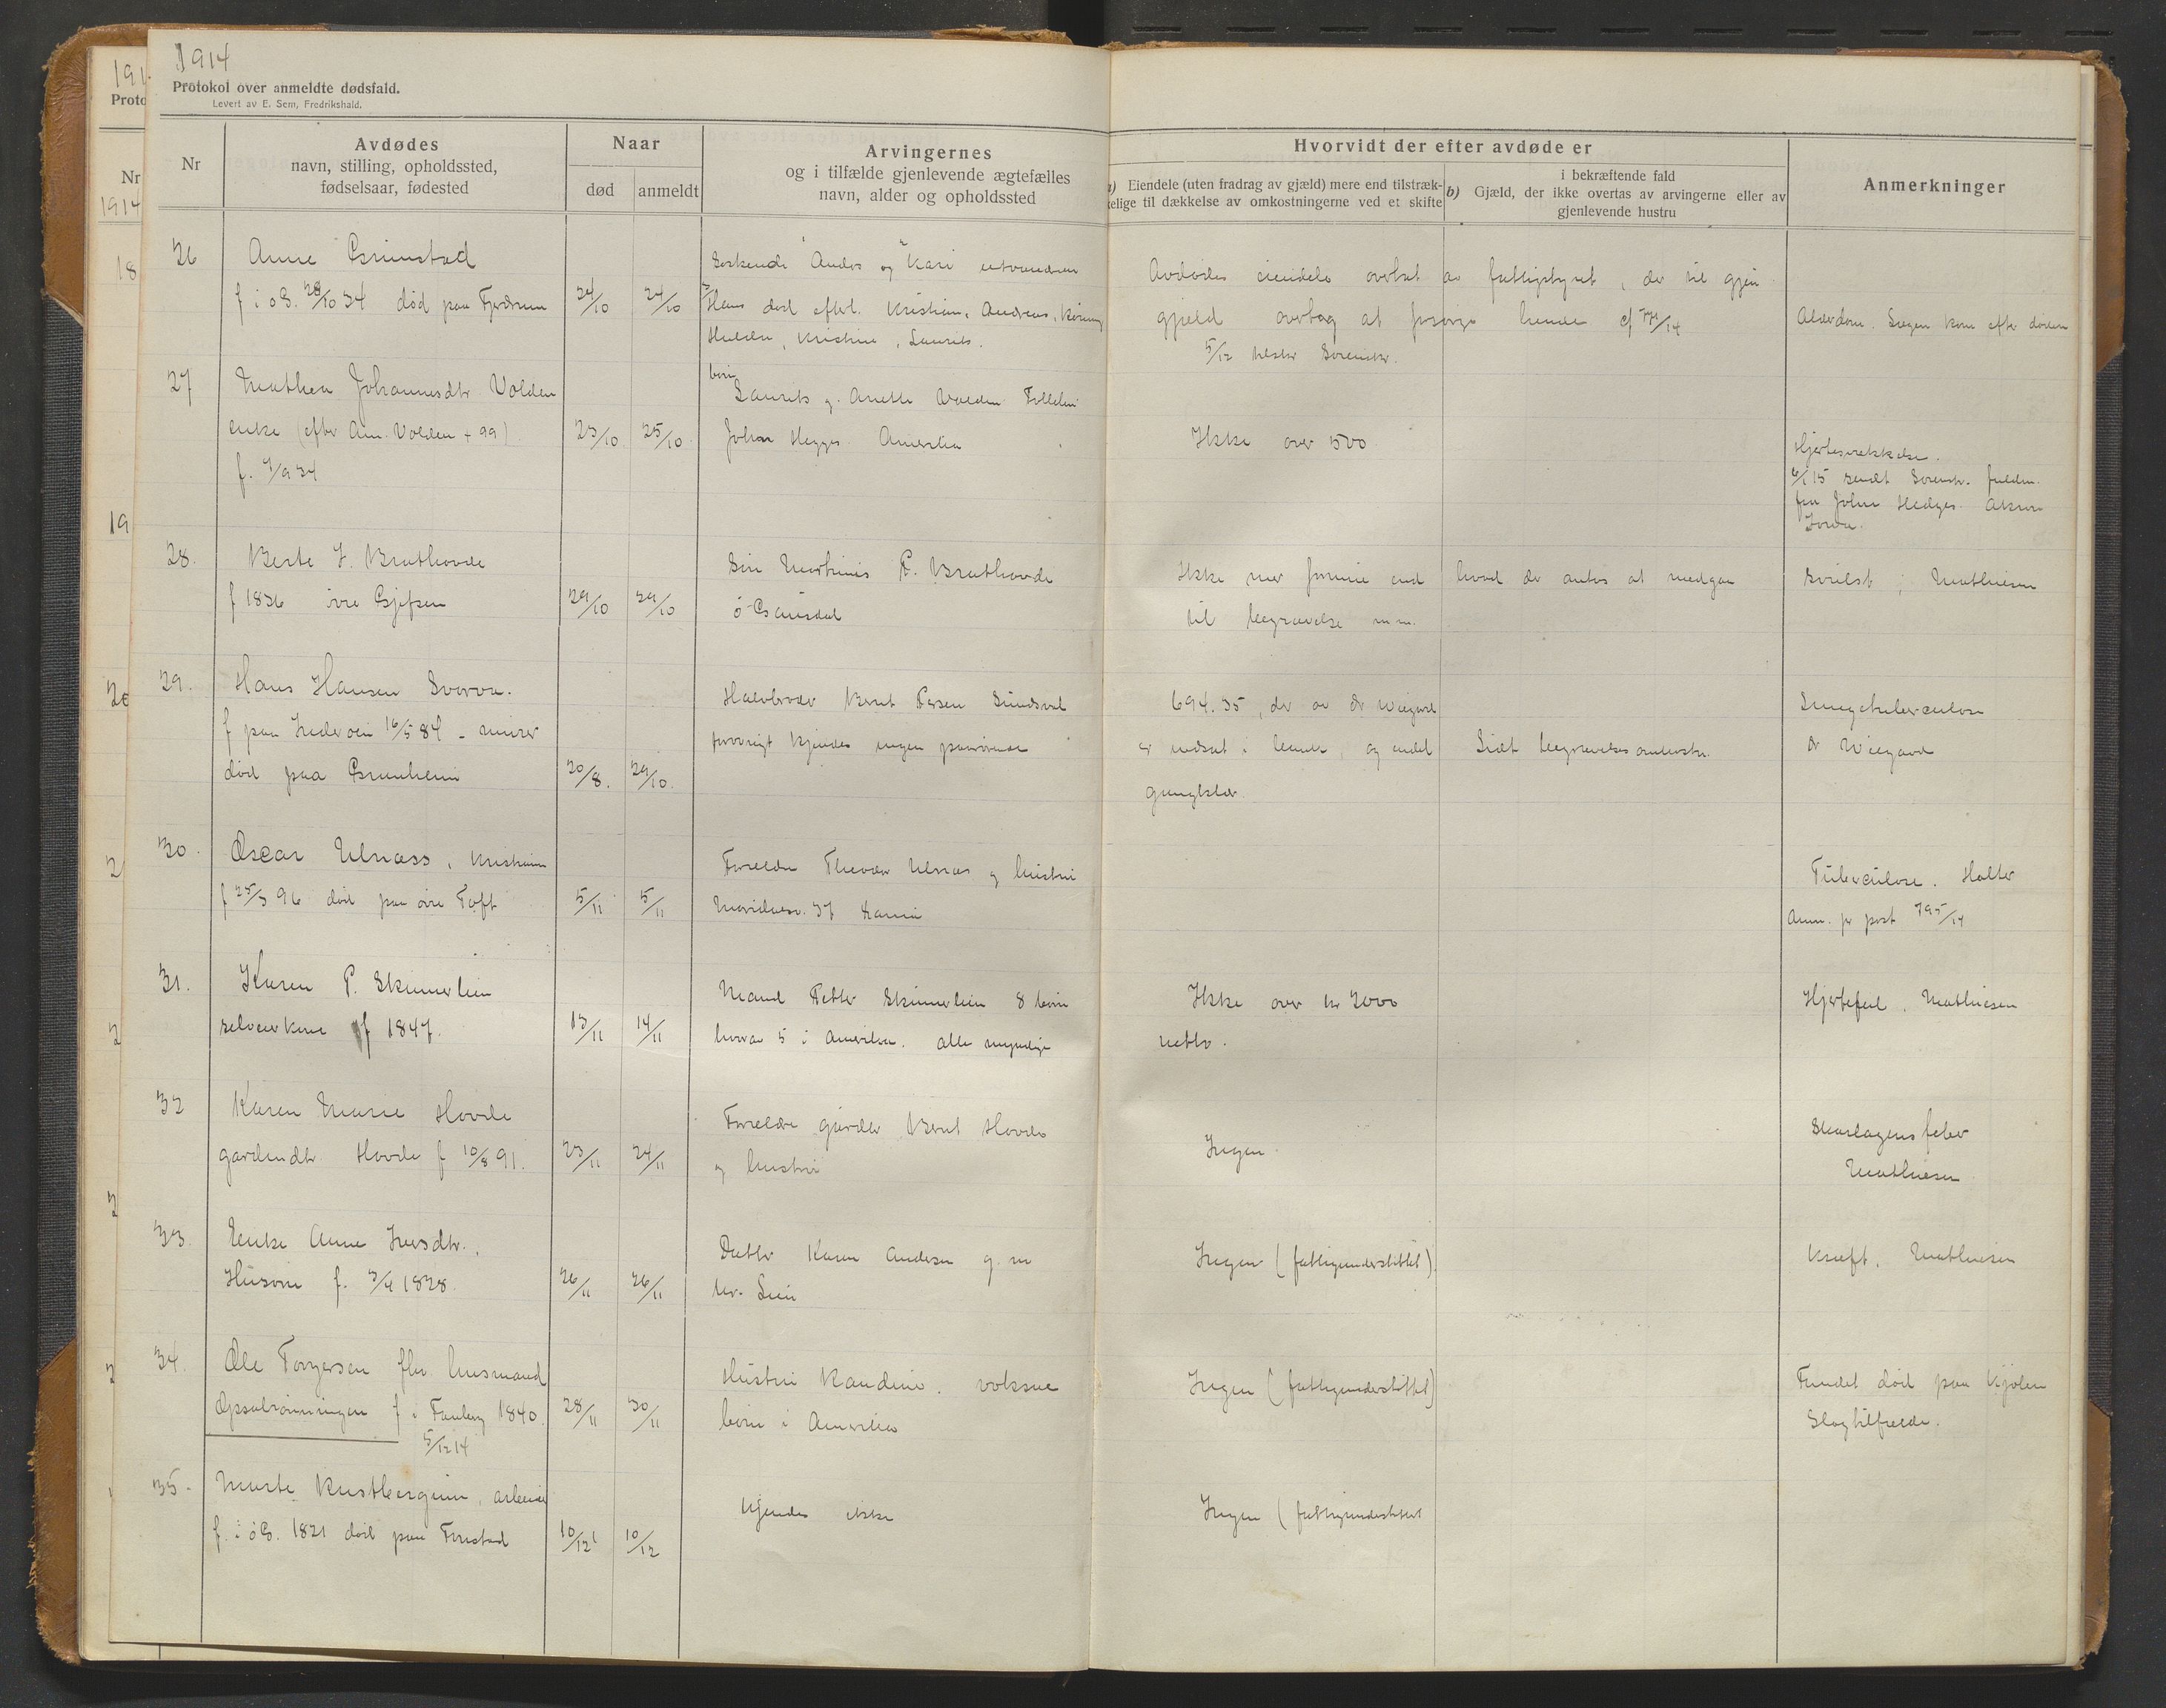 1914
Protokol over anmeldte dødsfald.
Levert av E. Sem, Fredrikshald.
Nr
Avdødes
navn, stilling, opholdssted,
fødselsaar, fødested
Naar
død
anmeldt
Arvingernes
og i tilfælde gjenlevende ægtefælles
navn, alder og opholdssted
Hvorvidt der efter avdøde er
a) Eiendele (uten fradrag av gjæld) mere end tilstræk-
kelige til dækkelse av omkostningerne ved et skifte
i bekræftende fald
b) Gjæld, der ikke overtas av arvingerne eller av
gjenlevende hustru
Anmerkninger
26
Anne Grimstad
f i ø G. 28/10 34 død paa
24/10
24/10
Søskende Anders og Kari
Hans død efterl. Kristian, Andreas,
Hulda, Kristine, Laurits.
Avdødes eiendele overtat av fattigstyret, der til gjen
gjæld overtog at forsørge hende cf 771/14
5/12 tilskr Sorenskr.
Alderdom. Lægen kom efter døden
27
Mathea Johannesdtr Volden
enke (efter Am. Volden + 99)
f. 7/9 34
23/10
25/10
børn
Laurits g. Anette Volden
Johan Hegges Amerika
Ikke over 500
Hjertesvækkelse.
6/1 15 sendt Sorenskr. fuldm.
fra John Hedges. Akron
Iowa.
28.
Berte J. Brathovde
f 1836 øvre Gjefsen
29/10
29/10
Søn Martinus P. Brathovde
ø Gausdal
Ikke mer formue end hvad der antas at medgaa
til begravelse m.m.
svulst ; Mathiesen
29.
Hans Hansen Svorva.
f paa Inderøen 16/5 84 - murer
død paa Granheim
20/8.
29/10.
Halvbroder Bernt Persen Sundsval
forøvrigt kjendes ingen paarørende
694.35, der av Dr Wiegard
er indsat i bank, og endel
gangklær
Lidt begravelsesomkostn.
Lungetuberculose
Dr Wiegard
30.
Oscar Ulnæss, Kristiania
f 25/3 96 død paa øvre Toft
5/11
5/11
Forældre Theodor Ulnæs og hustru
Maridalsv. 37 Krania
Tuberculose. Holter
Anm. pr post 795/14
31.
Karen P. Skinnerlien
selveierkone f 1847.
13/11
14/11
Mand Petter Skinnerlien 8 børn
hvorav 5 i Amerika. alle myndige
Ikke over kr 2000
netto.
Hjertefeil. Mathiesen
32
Karen Marie Hovde
gardmdtr Hovde f 10/8 91.
23/11
24/11
Forældre gardbr Bernt Hovde
og hustru
Ingen.
Skarlagensfeber
Mathiesen
33.
Enke Anne Iversdtr.,
Husom f. 3/4 1828.
26/11
26/11
Datter Karen Andersen g. m
Lien
Ingen (fattigunderstøttet)
Kræft. Mathiesen
34.
Ole Torgersen fhv. husmand
Opsalrønningen f i Faaberg 1840.
5/12 14
28/11
30/11
Hustru Randine. voksne
børn i Amerika
Ingen (fattigunderstøttet)
Fundet død paa kjølen
Slagtilfælde.
35.
Marte Kustbergeiun, arbeid
f. i ø G. 1821 død paa Forstad
10/12
10/12
Kjendes ikke
Ingen (fattigunderstøttet